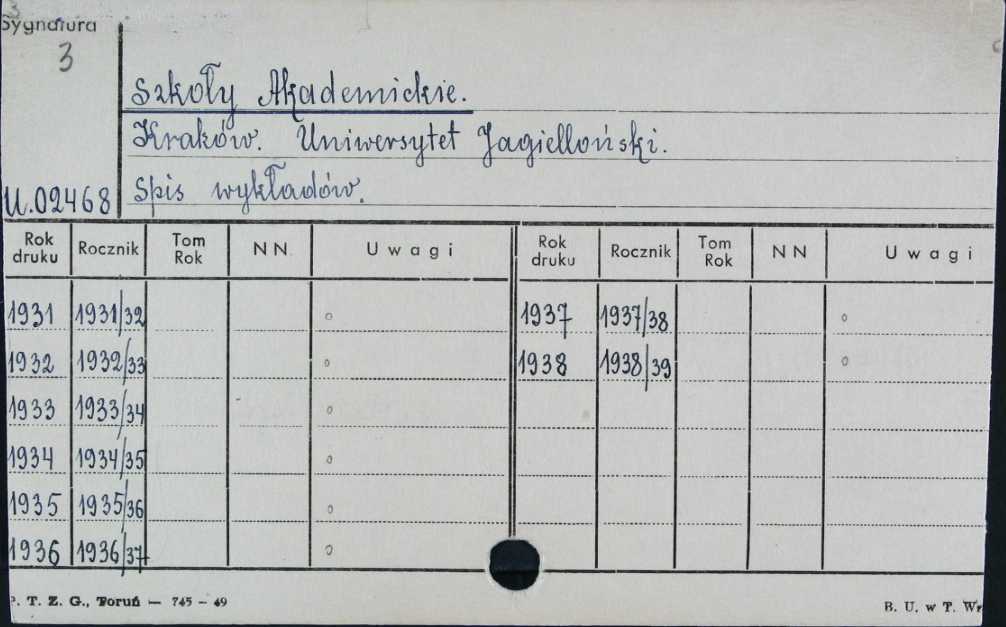 Sygnatura
3
Szkoły Akademickie.
Kraków. Uniwersytet Jagielloński.
U.02468 Spis wykładów.
Rok druku Rocznik Tom Rok NN Uwagi Rok druku Rocznik Tom Rok NN Uwagi
1931 1931/32 1937 1937/38
1932 1932/33 1938 1938/39
1933 1933/34
1934 1934/35
1935 1935/36
1936 1936/37
P. T. Z. G., Toruń — 745 – 49 B. U. w T. Wr